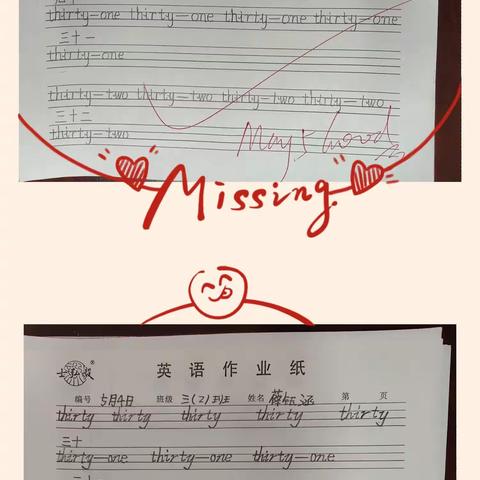 thirty-one thirty-one thirty-one thirty-one
三十一
thirty-one
thirty-two thirty-two thirty-two thirty-two
三十二
thirty-two
May 5 Good
Missing.
英语作业纸
编号 5月4日 班级 三(2)班 姓名 第 页
thirty thirty thirty thirty thirty
三十
thirty-one thirty-one thirty-one